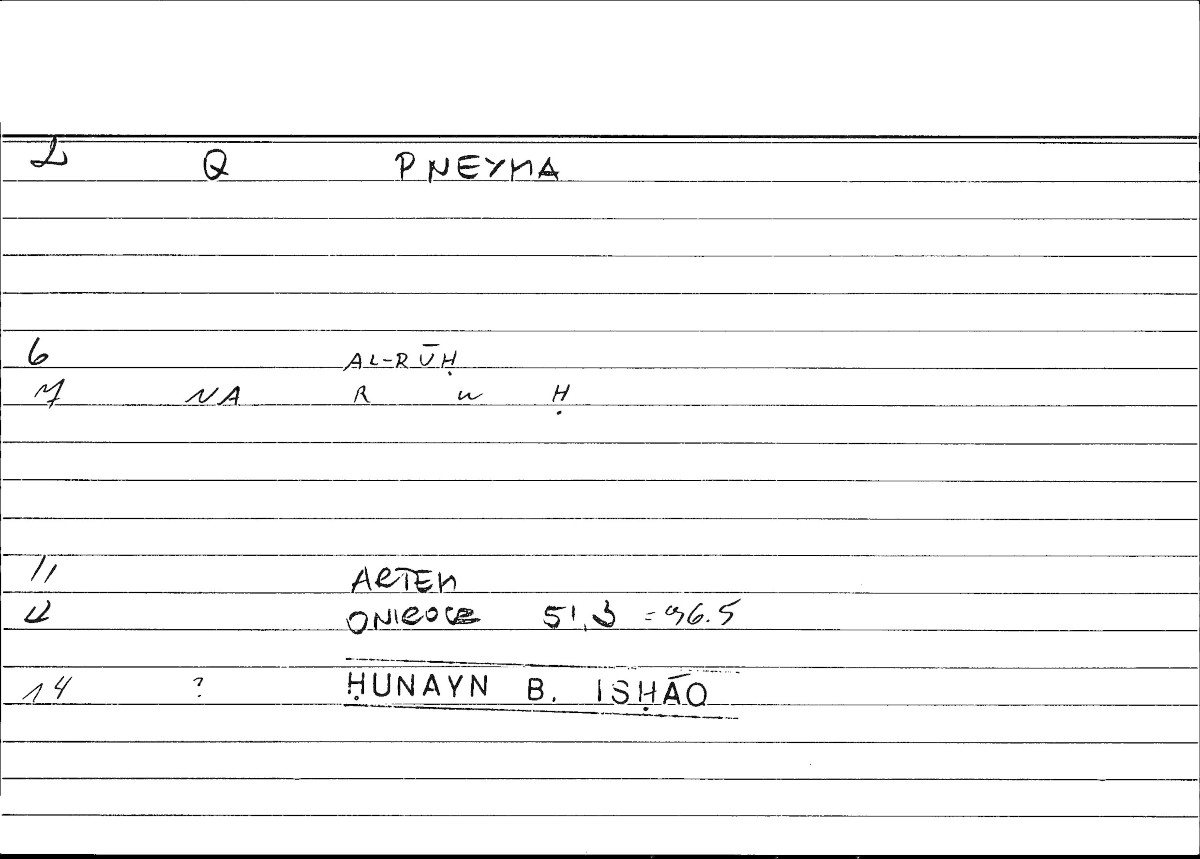 2 Q PNEYMA
6 AL-RŪḤ
7 NA R w Ḥ
11 ARTEM
12 ONIROCR 51,3 = 96.5
14 ? ḤUNAYN B. ISḤĀQ